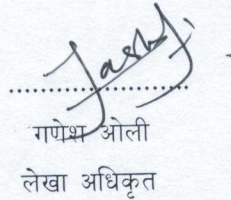 गणेश ओली
लेखा अधिकृत